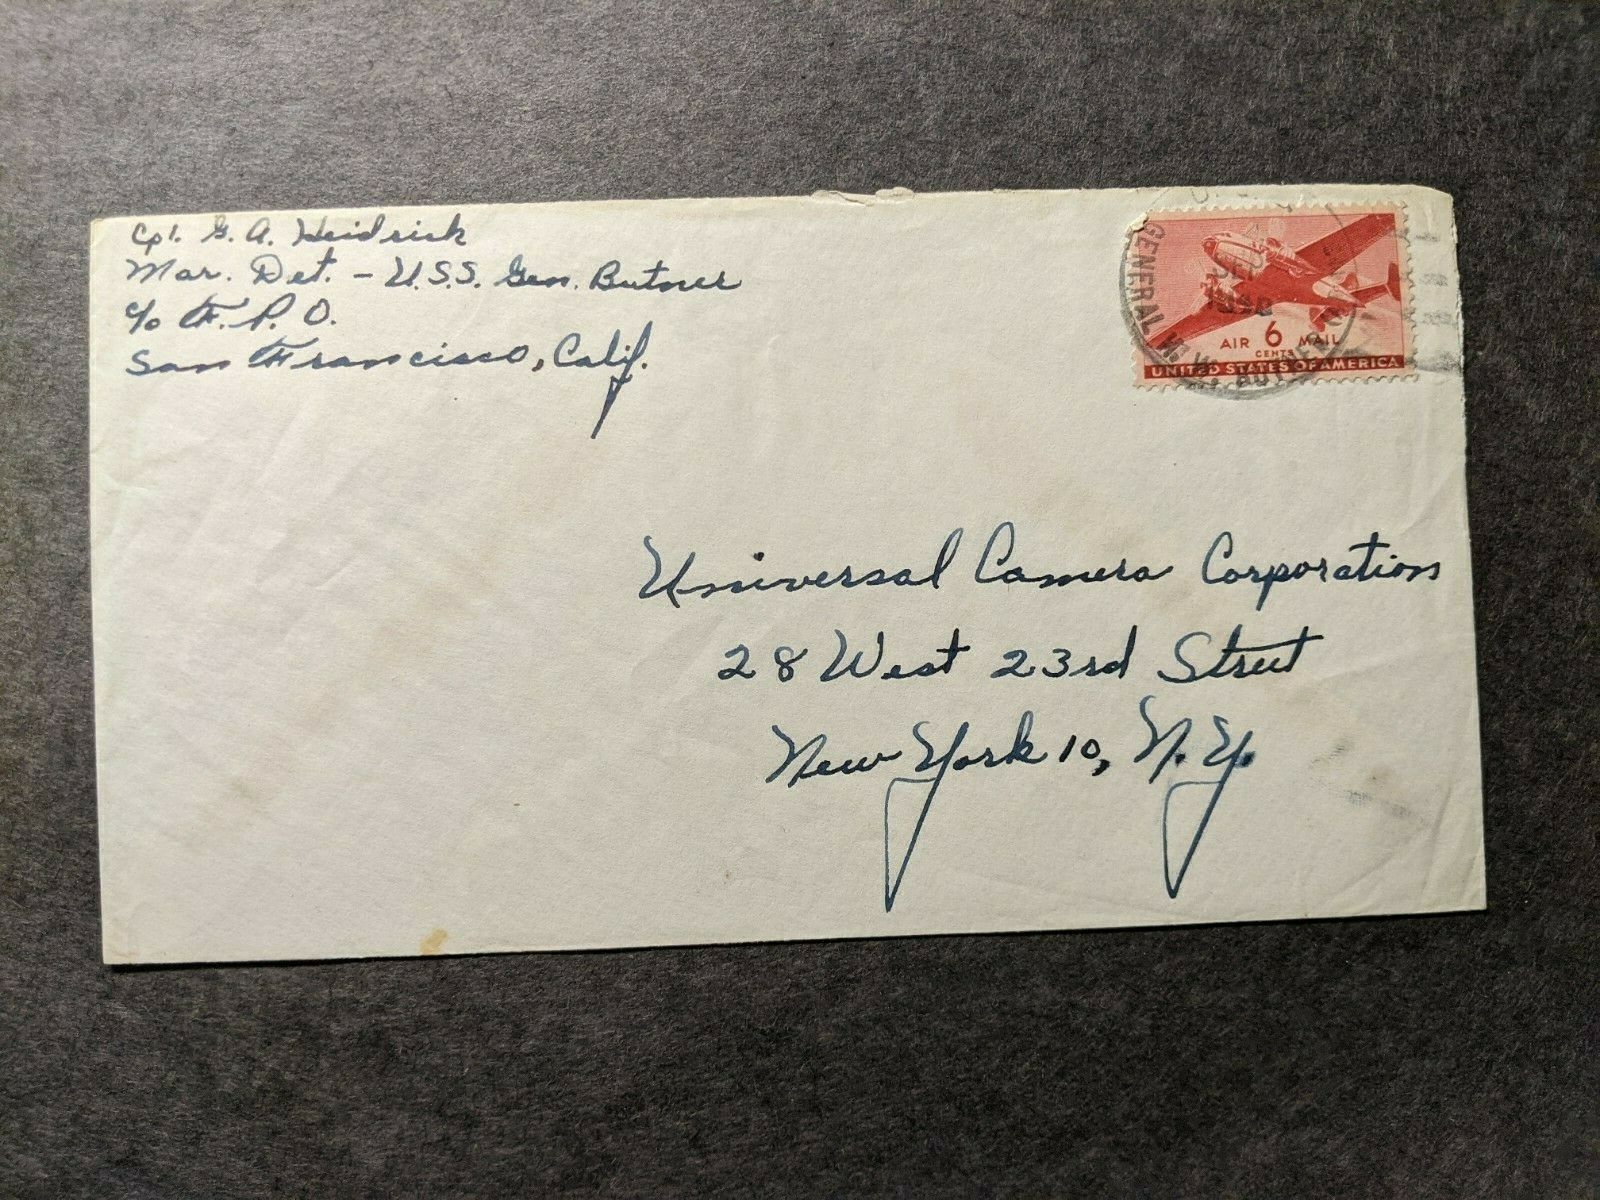 Cpl. G. A. Heidrick
Mar. Det. - U.S.S. Gen. Butner
c/o F. P. O.
San Francisco, Calif.
GENERAL W. W. BUTNER
AIR 6 MAIL
CENTS
UNITED STATES OF AMERICA
Universal Camera Corporation
28 West 23rd Street
New York 10, N. Y.